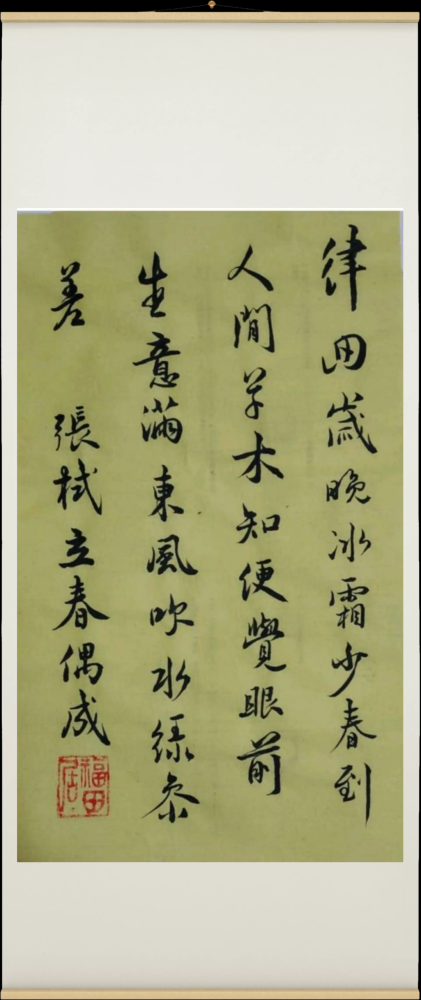 律回歲晚冰霜少春到
人間草木知便覺眼前
生意滿東風吹水綠參
差
張栻立春偶成
福田居